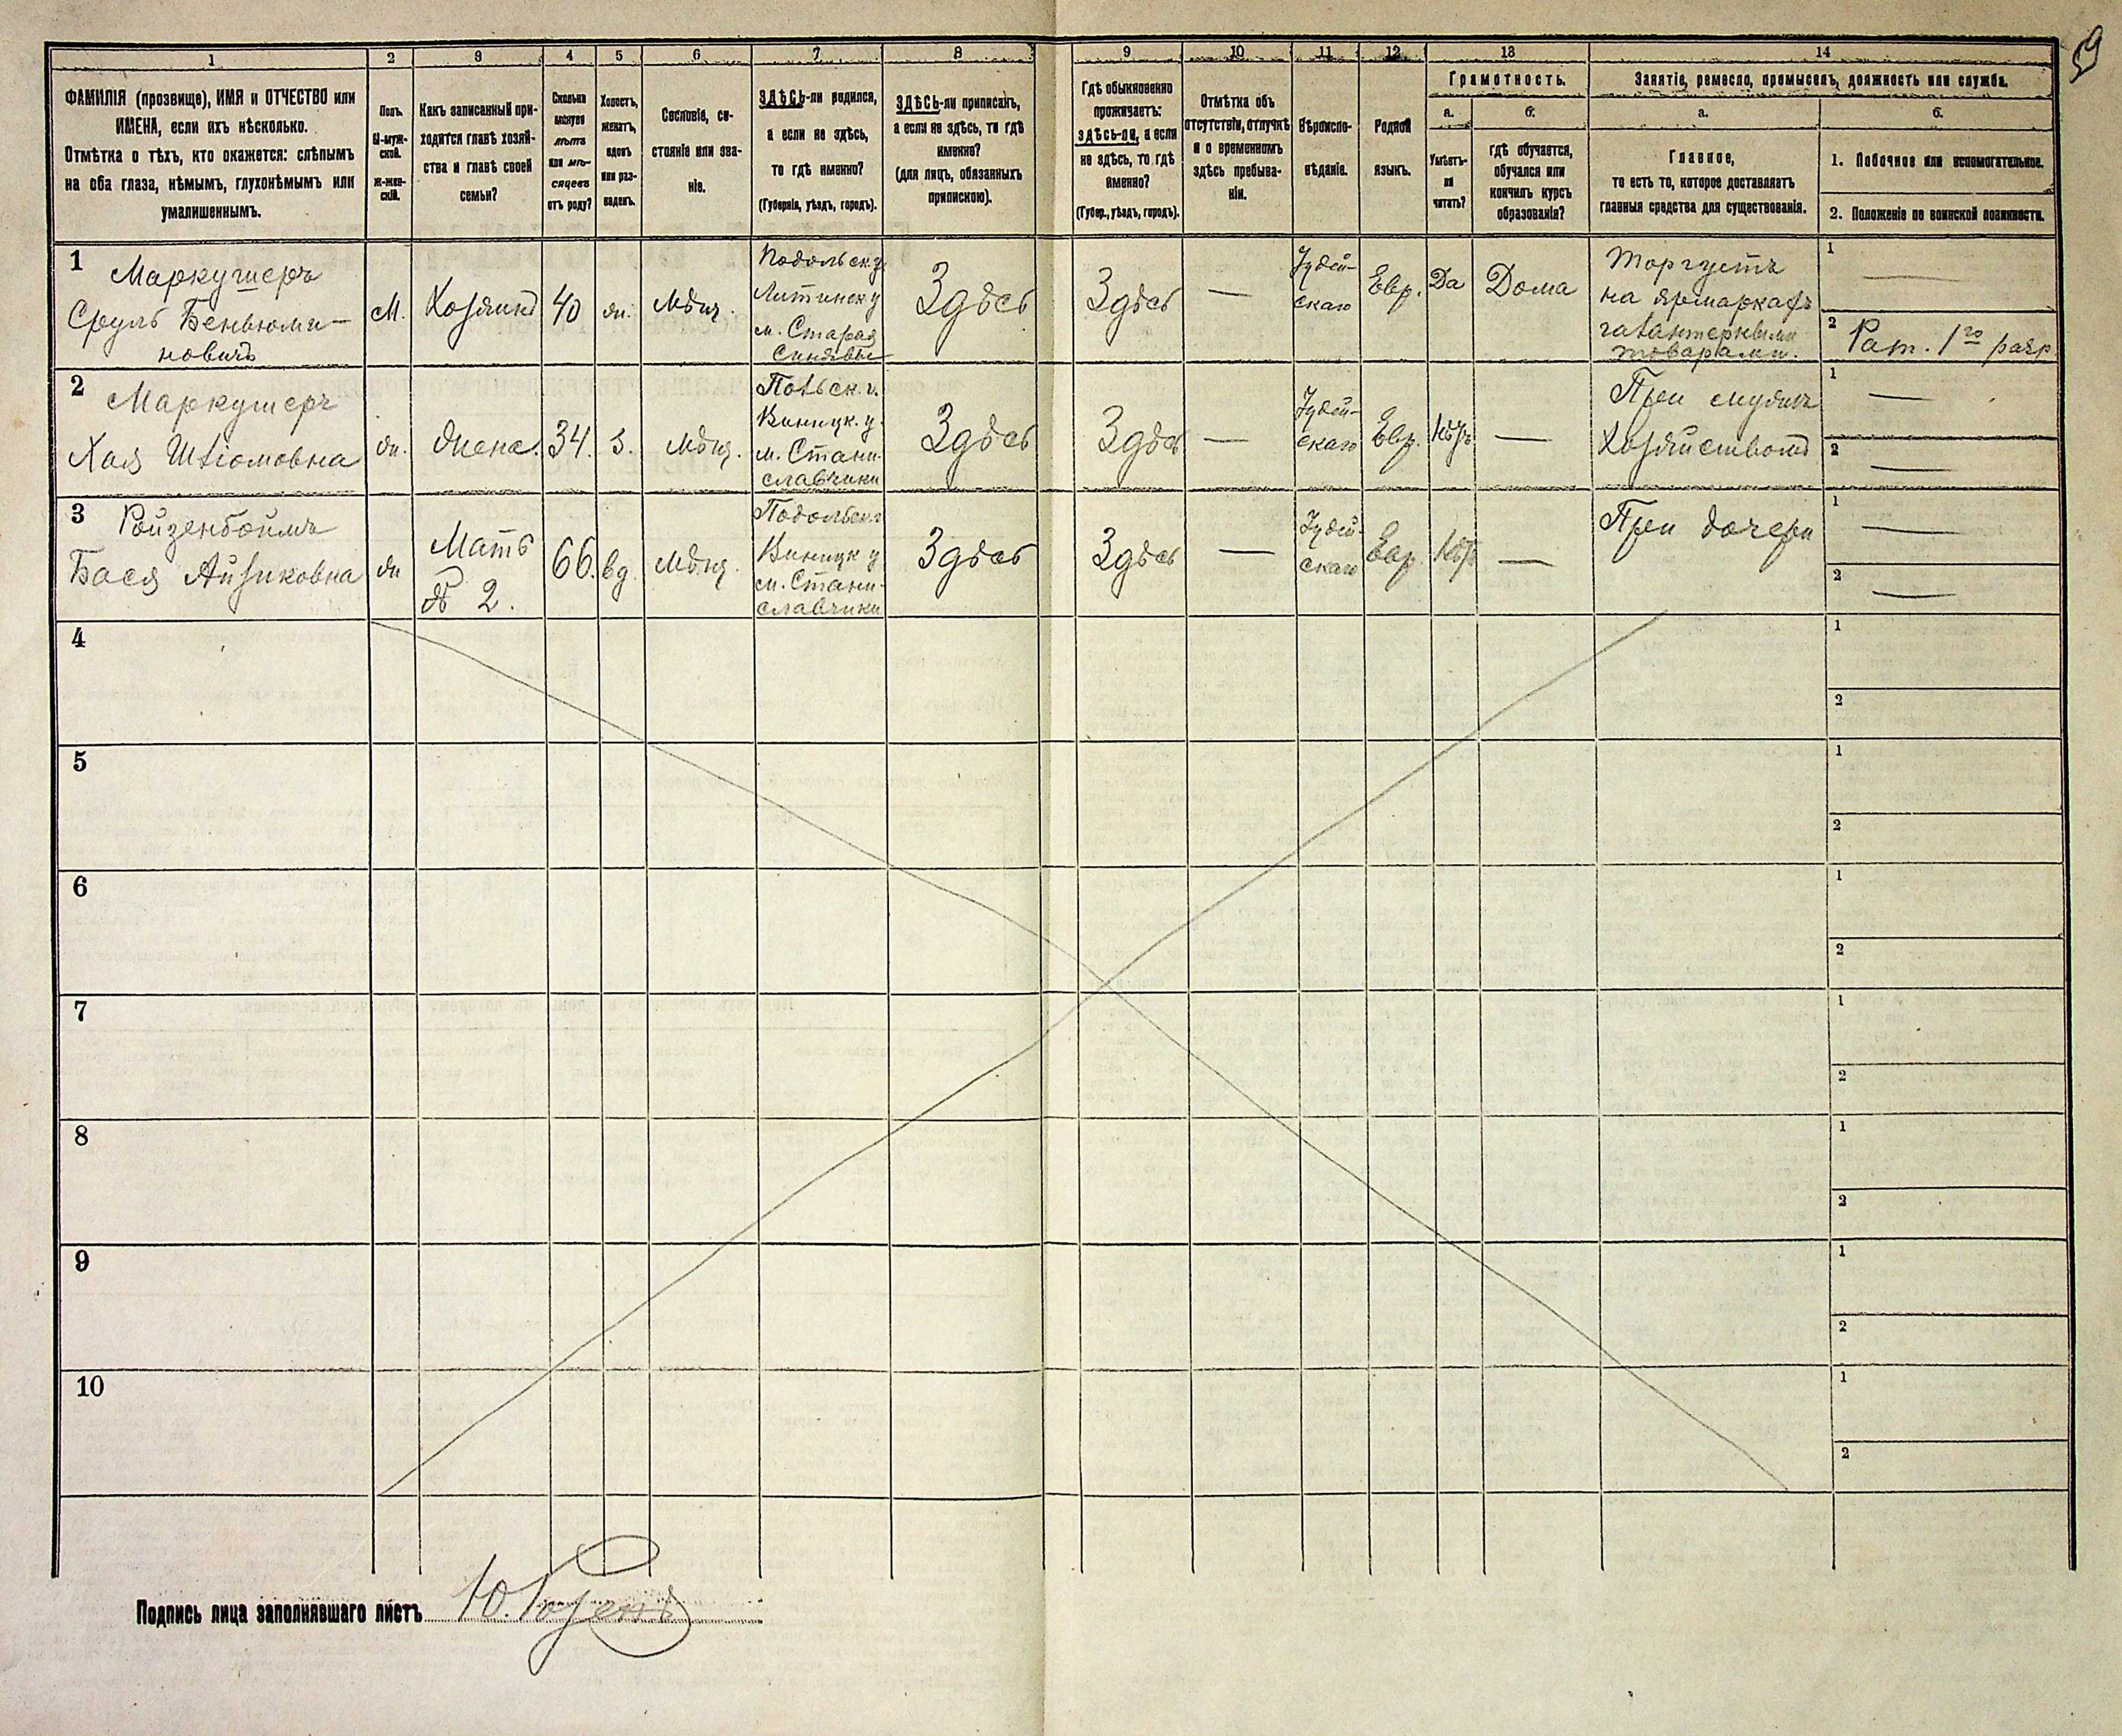 59
1
2
3
4
5
6
7
8
9
10
11
12
13
14
ФАМИЛІЯ (прозвище), ИМЯ и ОТЧЕСТВО или
ИМЕНА, если ихъ нѣсколько.
Отмѣтка о тѣхъ, кто окажется: слѣпымъ
на оба глаза, нѣмымъ, глухонѣмымъ или
умалишеннымъ.
Полъ.
М-муж-
ской.
Ж-жен-
скій.
Какъ записанный при-
ходится главѣ хозяй-
ства и главѣ своей
семьи?
Сколько
минуло
лѣтъ
или мѣ-
сяцевъ
отъ роду?
Холостъ,
женатъ,
вдовъ
или раз-
веденъ.
Сословіе, со-
стояніе или зва-
ніе.
ЗДѢСЬ-ли родился,
а если не здѣсь,
то гдѣ именно?
(Губернія, уѣздъ, городъ).
ЗДѢСЬ-ли приписанъ,
а если не здѣсь, то гдѣ
именно?
(для лицъ, обязанныхъ
припискою).
Гдѣ обыкновенно
проживаетъ:
здѣсь-ли, а если
не здѣсь, то гдѣ
именно?
(Губер., уѣздъ, городъ).
Отмѣтка объ
отсутствіи, отлучкѣ
и о временномъ
здѣсь пребыва-
ніи.
Вѣроиспо-
вѣданіе.
Родной
языкъ.
Грамотность.
а.
Умѣетъ-
ли
читать?
б.
гдѣ обучается,
обучался или
кончилъ курсъ
образованія?
Занятіе, ремесло, промыселъ, должность или служба.
а.
Главное,
то есть то, которое доставляетъ
главныя средства для существованія.
б.
1. Побочное или вспомогательное.
2. Положеніе по воинской повинности.
1
Маркушеръ
Сруль Беньюми-
новичъ
М.
Хозяинъ
40
жн.
Мѣщ.
Подольск. у
Литинск у
м. Старая
Синявы
Здѣсь
Здѣсь
—
Іудей-
скаго
Евр.
Да
Дома
Торгуетъ
на ярмаркахъ
галантерейными
товарами.
1
—
2
Рат. 1го разр
2
Маркушеръ
Хая Шліомовна
жн.
Жена.
34.
З.
Мѣщ.
Подьск. г.
Виницк. у.
м. Стани-
славчики
Здѣсь
Здѣсь
—
Іудей-
скаго
Евр.
—
При мужѣ
Хозяйствомъ
1
—
2
—
3
Ройзенбоймъ
Бася Айзиковна
жн
Мать
№ 2.
66.
вд.
Мѣщ.
Подольск.г
Виницк у
м. Стани-
славчики
Здѣсь
Здѣсь
—
Іудей-
скаго
Евр.
—
При дочери
1
—
2
—
4
1
2
5
1
2
6
1
2
7
1
2
8
1
2
9
1
2
10
1
2
Подпись лица заполнявшаго листъ Ю. Розенъ